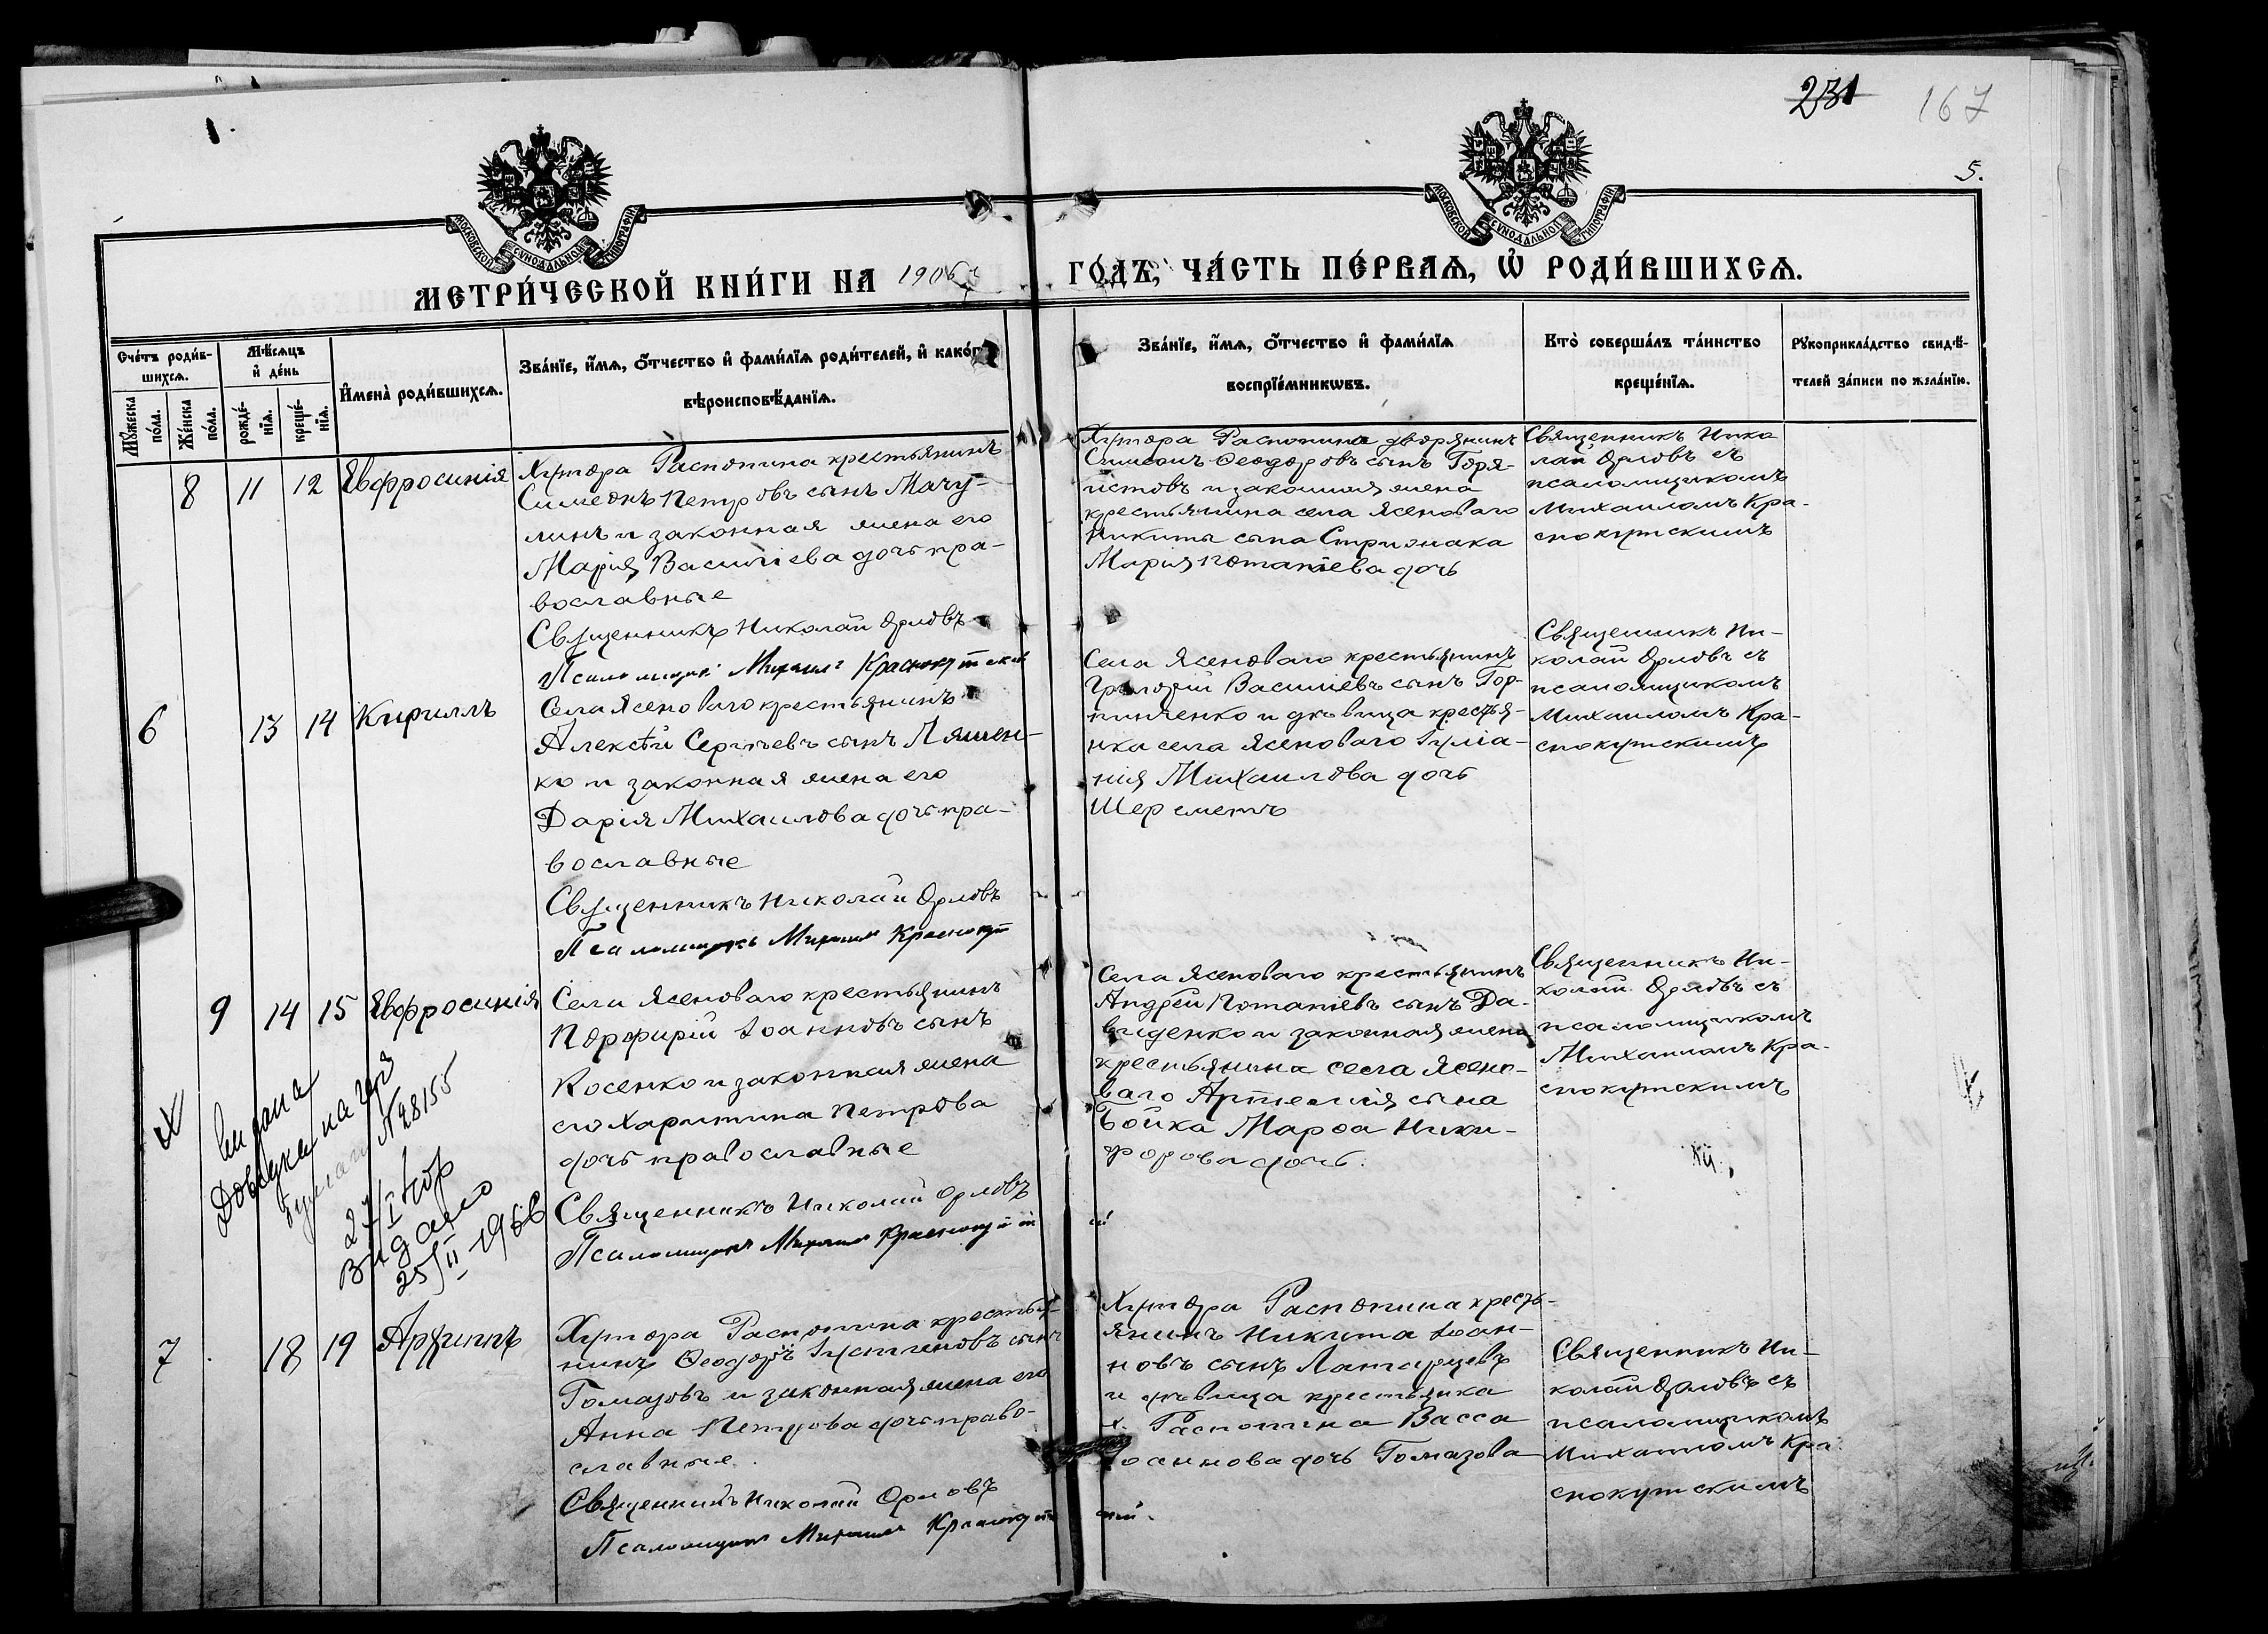 1.
231 167
5.
МОСКОВСКОЙ СѴНОДАЛЬНОЙ ТИПОГРАФІИ
МОСКОВСКОЙ СѴНОДАЛЬНОЙ ТИПОГРАФІИ
МЕТРИ́ЧЕСКОЙ КНИ́ГИ НА 1906 г
ГО́ДЪ, ЧА́СТЬ ПЕ́РВАѦ, Ѡ҆ РОДИ́ВШИХСѦ.
Сче́тъ роди́в-
шихсѧ.
Мꙋ́жеска по́ла.
Же́нска по́ла.
Мѣ́сѧцъ
и҆ де́нь
рожде́-
нїѧ.
креще́-
нїѧ.
И҆мена̀ роди́вшихсѧ.
Зва́нїе, и҆́мѧ, ѻ҆́тчество и҆ фами́лїѧ роди́телей, и҆ како́гѡ
вѣроисповѣ́данїѧ.
Зва́нїе, и҆́мѧ, ѻ҆́тчество и҆ фами́лїѧ
воспрїе́мникѡвъ.
Кто̀ соверша́лъ та́инство
креще́нїѧ.
Рꙋкоприкла́дство свидѣ́-
телей за́писи по жела́нїю.
8 11 12 Евфросинія
Хутора Распопина крестьянинъ
Симеонъ Петровъ сынъ Мачу-
линъ и законная жена его
Марія Васильева дочь пра-
вославные
Священникъ Николай Орловъ
Псаломщикъ Михаилъ Краснокутскій
Хутора Распопина дворянинъ
Симеонъ Ѳеодоровъ сынъ Горя-
истовъ и законная жена
крестьянина села Ясеноваго
Никиты сына Стрижака
Марія Потапіева дочь
Священникъ Нико
лай Орловъ съ
псаломщикомъ
Михаиломъ Кра-
снокутскимъ
6 13 14 Кириллъ
Села Ясеноваго крестьянинъ
Алексѣй Сергѣевъ сынъ Ляшен-
ко и законная жена его
Дарія Михаилова дочь пра-
вославные
Священникъ Николай Орловъ
Псаломщикъ Михаилъ Краснокут
Села Ясеноваго крестьянинъ
Григорій Васильевъ сынъ Гор-
пинченко и дѣвица крестья-
нка села Ясеноваго Іуліа-
нія Михаилова дочь
Шереметъ
Священникъ Ни-
колай Орловъ съ
псаломщикомъ
Михаиломъ Кра-
снокутскимъ
9 14 15 Евфросинія
Села Ясеноваго крестьянинъ
Порфирій Іоанновъ сынъ
Косенко и законная жена
его Харитина Петрова
дочь православные
Священникъ Николай Орловъ
Псаломщикъ Михаилъ Краснокутскій
Села Ясеноваго крестьянинъ
Андрей Потапіевъ сынъ Да-
виденко и законная жена
крестьянина села Ясено-
ваго Артемія сына
Бойка Марѳа Ники-
форова дочь.
Священникъ Ни-
колай Орловъ съ
псаломщикомъ
Михаиломъ Кра-
снокутскимъ
Видана
Довідка на
N 28155
27/I
видано
25/II 1966
7 18 19 Архиппъ
Хутора Распопина крестья-
нинъ Ѳеодоръ Іустиновъ сынъ
Гомазовъ и законная жена его
Анна Петрова дочь право-
славные.
Священникъ Николай Орловъ
Псаломщикъ Михаилъ Краснокутскій.
Хутора Распопина кресть-
янинъ Никита Іоан-
новъ сынъ
и дѣвица крестьянка
х. Распопина Васса
Іоаннова дочь Гомазова
Священникъ Ни-
колай Орловъ съ
псаломщикомъ
Михаиломъ Кра-
снокутскимъ